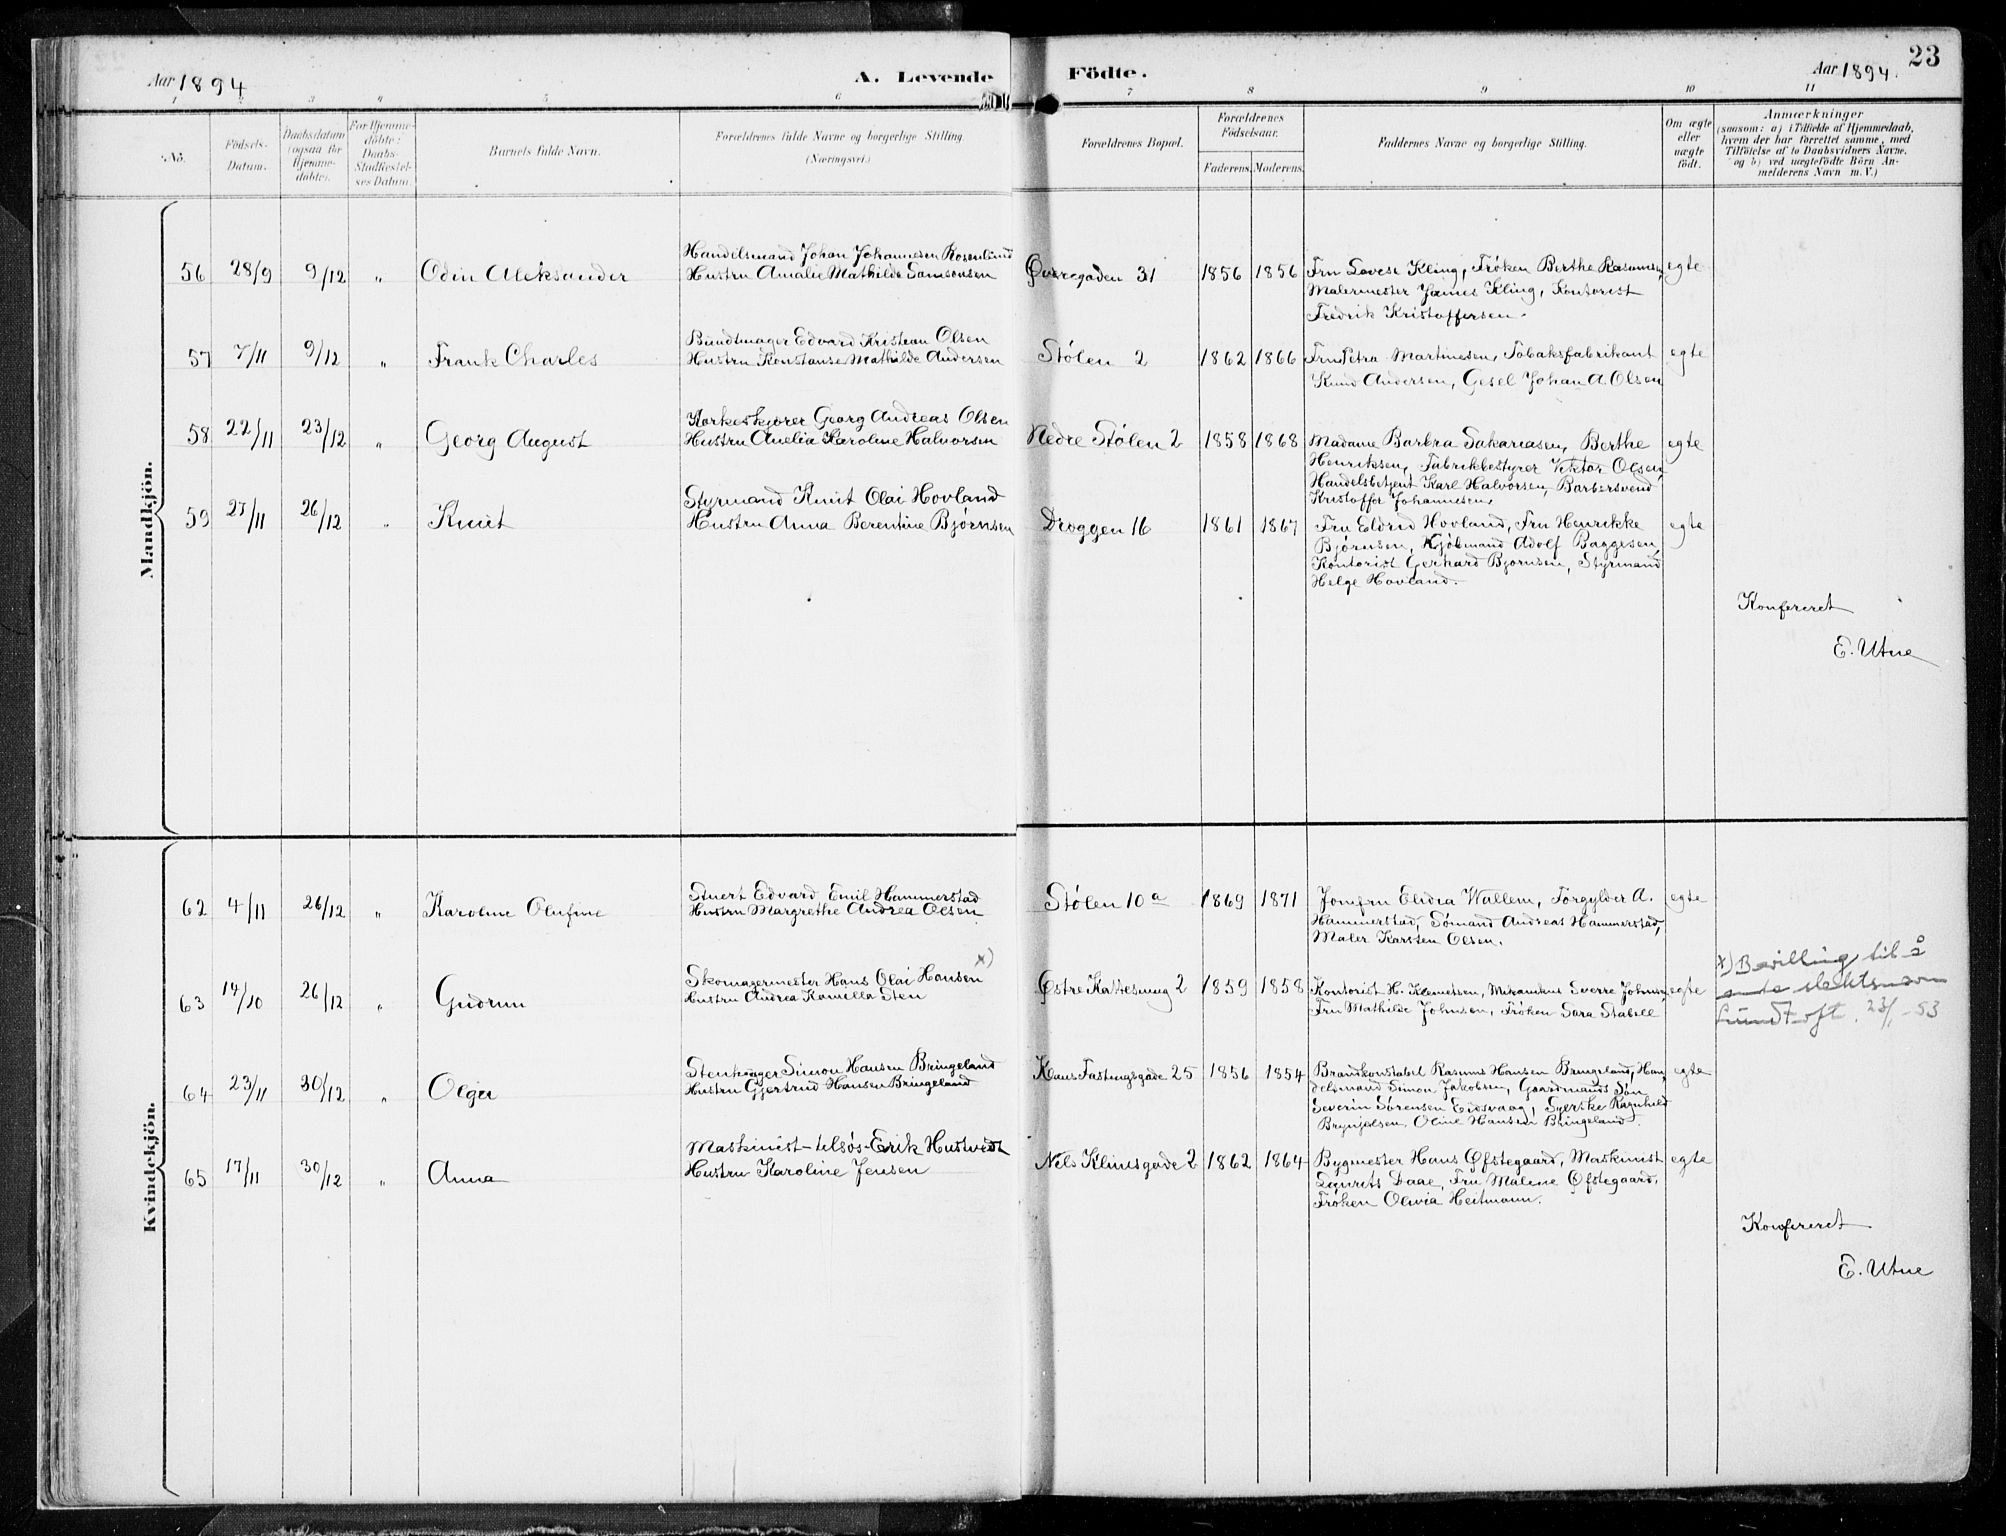 23
Aar 1894 A. Levende Födte. Aar 1894.
1 2 3 4 5 6 7 8 9 10 11
No.
Födsels-Datum.
Daabsdatum (ogsaa for Hjemme-döbte).
For Hjemme-döbte: Daabs-Stadfæstel-ses Datum.
Barnets fulde Navn.
Forældrenes fulde Navne og borgerlige Stilling. (Næringsvei.)
Forældrenes Bopæl.
Forældrenes Födselsaar.
Faderens. Moderens.
Faddernes Navne og borgerlige Stilling.
Om ægte eller uægte födt.
Anmærkninger
(saasom: a) i Tilfælde af Hjemmedaab,
hvem der har forrettet samme, med
Tilföielse af to Daabsvidners Navne.
og b) ved uægtefödte Börn An-
melderens Navn m. V.)
Mandkjön.
56 28/9 9/12 " Odin Aleksander
Handelsmand Johan Johannesen Rosenlund
Hustru Amalie Mathilde Samsonsen
Øvregaden 31 1856 1856
Fru Lovise Kling, Frøken Berthe Rasmusen, egte
Malermester James Kling, Kontorist
Fredrik Kristoffersen.
57 7/11 9/12 " Frank Charles
Bundtmager Edvard Kristian Olsen
Hustru Konstanse Mathilde Andersen
Stølen 2 1862 1866
Fru Petra Martinesen, Tobaksfabrikant egte
Knud Andersen, Gesel Johan A. Olsen
58 22/11 23/12 " Georg August
Korkeskjører Georg Andreas Olsen
Hustru Amelia Karoline Halvorsen
Nedre Stølen 2 1858 1868
Madame Barbra Sakariasen, Berthe egte
Henriksen, Fabrikbestyrer Viktor Olsen
Handelsbetjent Karl Halvorsen, Barbersvend
Kristoffer Johannesen.
59 27/11 26/12 " Knut
Styrmand Knut Olai Hovland
Hustru Anna Berentine Bjørnsen
Dreggen 16 1861 1867
Fru Eldrid Hovland, Fru Henrikke egte
Bjørnsen, Kjøbmand Adolf Baggesen,
Kontorist Gerhard Bjørnsen, Styrmand
Helge Hovland.
Konfereret
E. Utne
Kvindekjön.
62 4/11 26/12 " Karoline Olufine
Snert Edvard Emil Hammerstad
Hustru Margrethe Andrea Olsen
Stølen 10 a 1869 1871
Jomfru Elidia Wallem, Forgylder A. egte
Hammerstad, Sømand Andreas Hammerstad,
Maler Karsten Olsen.
63 14/10 26/12 " Gudrun
Skomagermester Hans Olai Hansen x)
Hustru Andrea Kamilla Sten
Østre Kattesmug 2 1859 1858
Kontorist H. Klemetsen, Mekanikus Sverre Johnsen egte
Fru Mathilde Johnsen, Frøken Sara Stabell
x) Bevilling til å
slektsnavn
Lundtoft. 23/1-53
64 23/11 30/12 " Olga
Stenhugger Simon Hansen Bringeland
Hustru Gjertrud Hansen Bringeland
Hans Fastingsgade 25 1856 1854
Brandkonstabel Rasmus Hansen Bringeland, Han- egte
delsmand Simon Jakobsen, Gaardmands Søn
Severin Sørensen Eidsvaag, Syerske Ragnhild
Brynjelsen, Oline Hansen Bringeland.
65 17/11 30/12 " Anna
Maskinist-tilsøs-Erik Hustvedt
Hustru Karoline Jensen
Nels Klimsgade 2 1862 1864
Bygmester Hans Øfstegaard, Maskinist egte
Daae, Fru Malene Øfstegaard,
Frøken Olivia Heitmann.
Konfereret
E. Utne